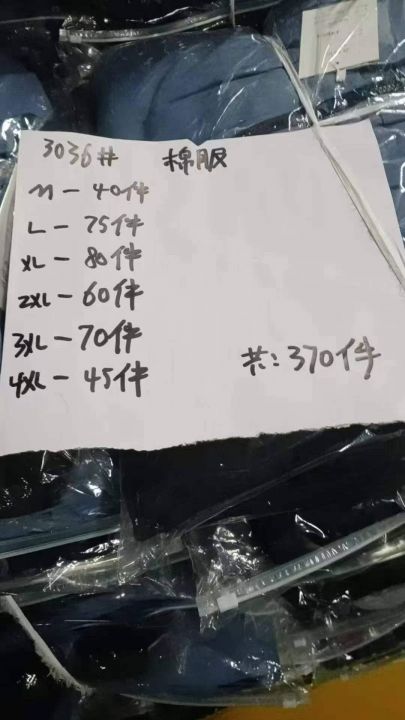 3036# 棉服
M - 40件
L - 75件
XL - 80件
2XL - 60件
3XL - 70件
4XL - 45件
共: 370件